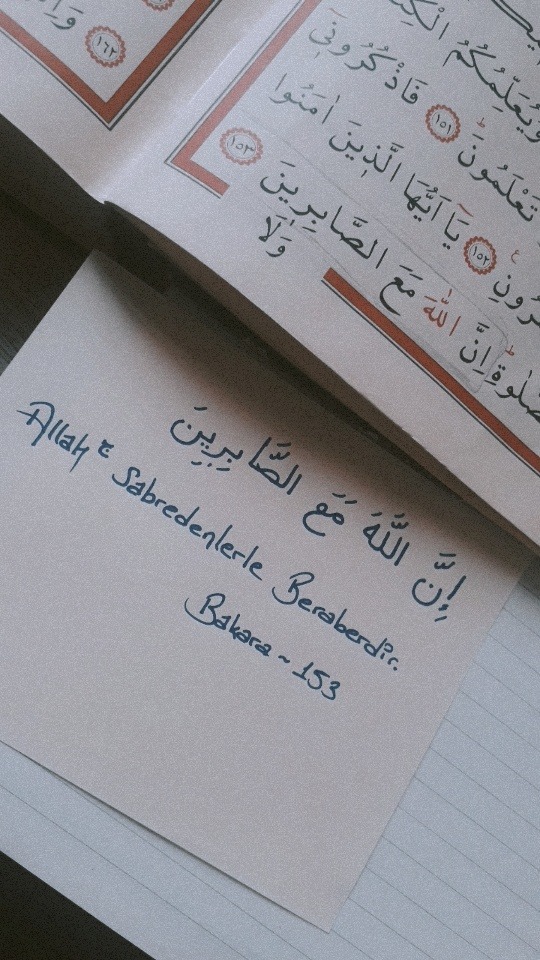 وَيُعَلِّمُكُمُ
تَعْلَمُونَ ١٥١ فَاذْكُرُونٖى
يَٓا اَيُّهَا الَّذٖينَ اٰمَنُوا
اِنَّ اللّٰهَ مَعَ الصَّابِرٖينَ ١٥٣
وَلَا
١٥٢
١٦٢
إِنَّ اللَّهَ مَعَ الصَّابِرِينَ
Allah ﷻ Sabredenlerle Beraberdir.
Bakara ~ 153